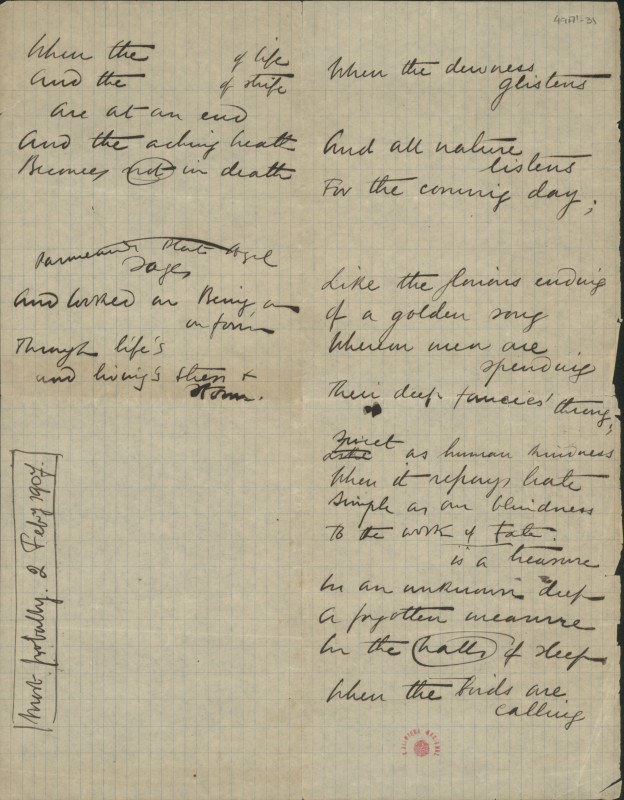 49A¹-31
When the of life
And the of strife
are at an end
And the aching heath
Becomes not in death
Parmenides Plato Hegel
Sages
And looked on Being
on form
Through life's
and living's stress &
storm.
Most probably. 2 Feby 1907.
When the dewness
glistens
And all nature
listens
For the coming day;
Like the glorious ending
Of a golden song
Wherein men are
spending
Their deep fancies' throng;
Sweet
as human kindness
When it repays hate
Simple as our blindness
To the work of Fate.
is a treasure
In an unknown deep
A forgotten measure
In the halls of sleep
When the birds are
calling